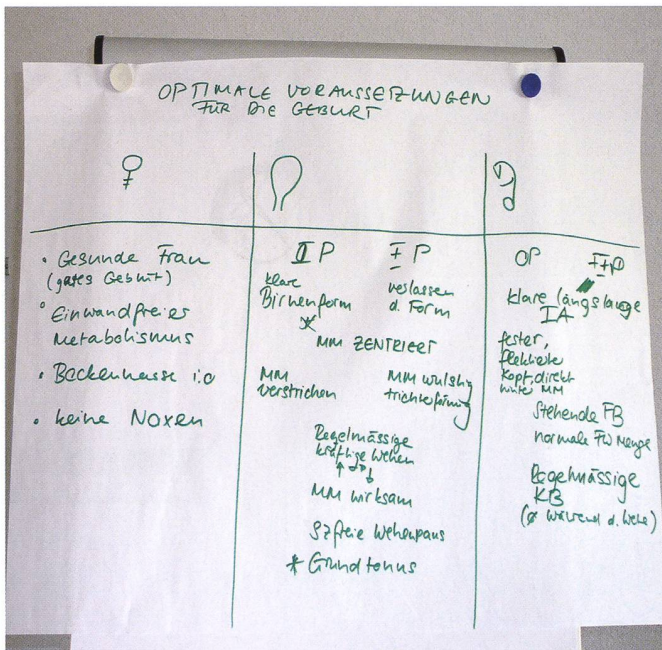 OPTIMALE VORAUSSETZUNGEN
FÜR DIE GEBURT
♀
• Gesunde Frau
(gutes Gebiet)
• Einwandfreier
Metabolismus
• Beckenmasse i.O
• keine Noxen
I P
klare
Birnenform
*
verlassen
d. Form
MM ZENTRIERT
MM
verstrichen
MM wulstig
trichterförmig
Regelmässige
kräftige Wehen
MM wirksam
SZfreie Wehenpaus
* Grundtonus
OP
klare längslage
IA
fester,
flektierter
Kopf, direkt
hinter MM
Stehende FB
normale FW Menge
Regelmässige
KB
(ø während d. Wehe)